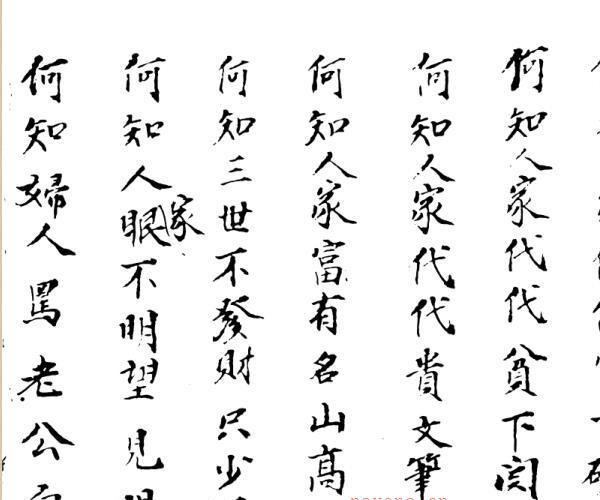 何知人家代代貧下関
何知人家代代貴文筆
何知人家富有名山高
何知三世不發財只少
何知人家眼不明望見
何知婦人罵老公